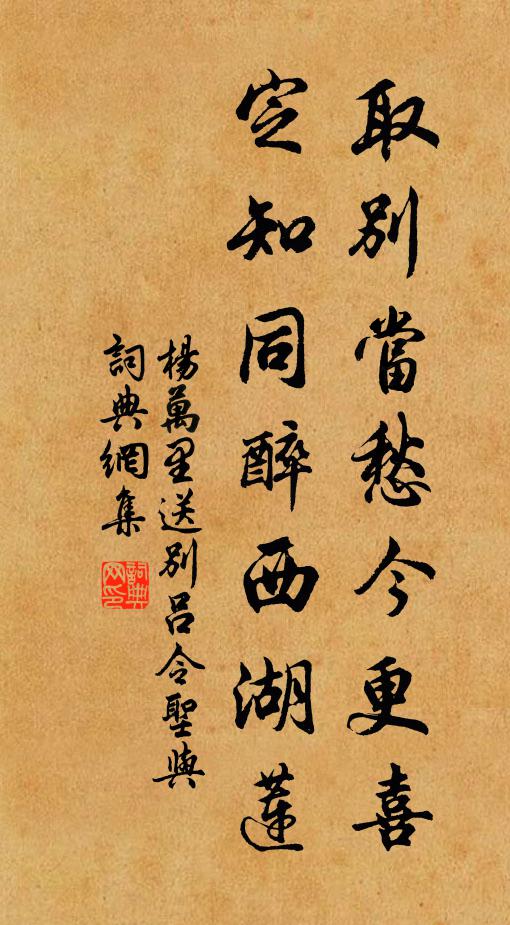 取別當愁今更喜
定知同醉西湖蓮
楊萬里送別呂令聖與
詞典網集
詞典网印